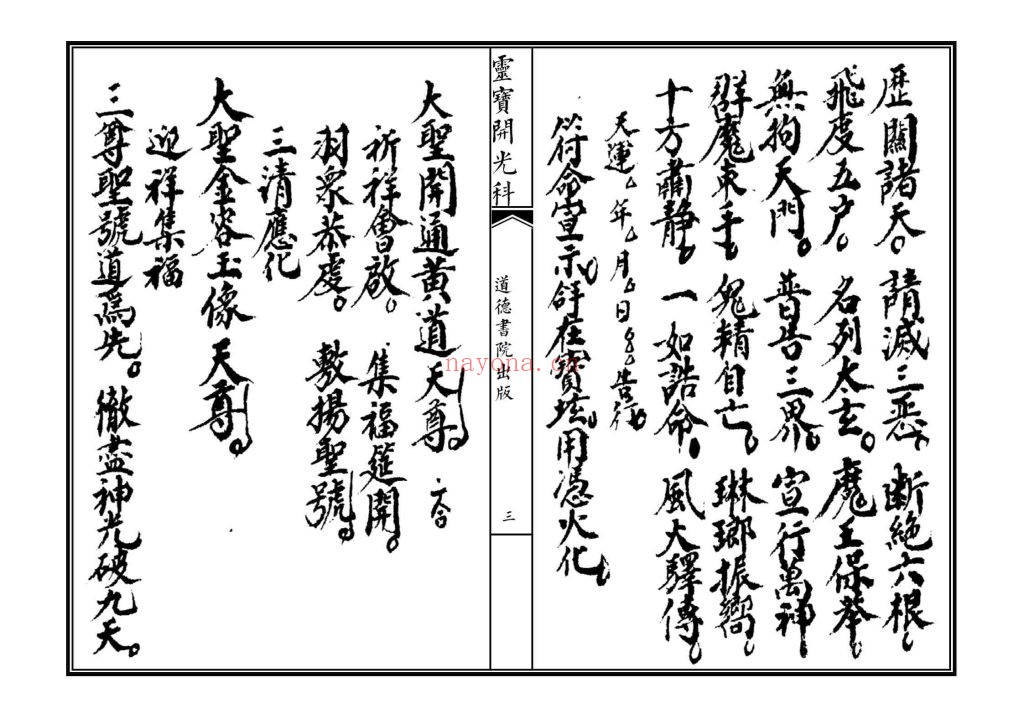 歷關諸天。請滅三惡、斷絕六根、
飛度五户。名列太玄。魔王保举、
無拘天門。普告三界。宣行萬神、
群魔束手、鬼精自亡。琳瑯振嚮、
十方肅静。一如誥命、風火驛傳、
天運 年 月 日 告行
符命宣示 在寶坛。用憑火化
靈寶開光科
道德書院出版
三
大聖開通黄道天尊。 六合
祈祥會啟。集福筵開。
羽衆恭虔。敷揚聖號。
三清應化
大聖金容玉像天尊。
迎祥集福
三尊聖號道爲先。徹盡神光破九天。
nayona.cn